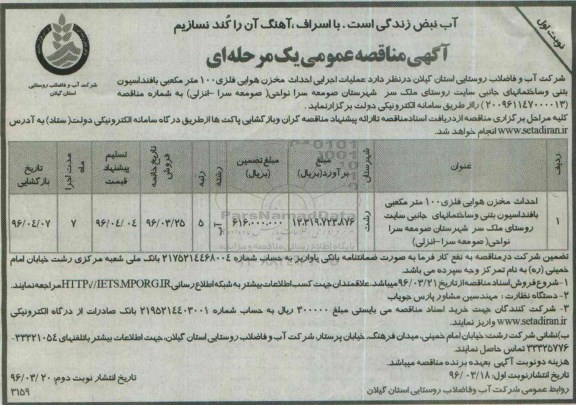 آب نبض زندگی است. با اسراف، آهنگ آن را کُند نسازیم
نوبت اول
آگهی مناقصه عمومی یک مرحله ای
شرکت آب و فاضلاب روستایی
استان گیلان
شرکت آب و فاضلاب روستایی استان گیلان درنظر دارد عملیات اجرایی احداث مخزن هوایی فلزی ۱۰۰ متر مکعبی بافنداسیون
بتنی وساختمانهای جانبی سایت روستای ملک سر شهرستان صومعه سرا نواحی( صومعه سرا -انزلی) به شماره مناقصه
(۲۰۰۹۶۱۱۴۷۰۰۰۰۱۳) رااز طریق سامانه الکترونیکی دولت برگزارنماید.
کلیه مراحل برگزاری مناقصه ازدریافت اسنادمناقصه تاارائه پیشنهاد مناقصه گران وبازگشایی پاکت ها ازطریق درگاه سامانه الکترونیکی دولت(ستاد) به آدرس
www.setadiran.ir انجام خواهد شد.
ردیف عنوان شهرستان مبلغ برآورد(ریال) مبلغ تضمین (ریال) رشته رتبه تاریخ خاتمه فروش تسلیم پیشنهاد قیمت مدت اجرا ماه تاریخ بازگشایی
۱ احداث مخزن هوایی فلزی ۱۰۰ متر مکعبی بافنداسیون بتنی وساختمانهای جانبی سایت روستای ملک سر شهرستان صومعه سرا نواحی( صومعه سرا -انزلی) رشت ۱۲،۳۱۹،۷۲۳،۸۷۶ ۶۱۶،۰۰۰،۰۰۰ آب ۵ ۹۶/۰۳/۲۵ ۹۶/۰۴/۰۴ ۷ ۹۶/۰۴/۰۷
تضمین شرکت درمناقصه به نفع کار فرما به صورت ضمانتنامه بانکی یاواریز به حساب شماره ۲۱۷۵۲۱۴۴۶۸۰۰۴ بانک ملی شعبه مرکزی رشت خیابان امام
خمینی (ره) به نام تمرکز وجه سپرده می باشد.
۱-شروع فروش اسناد مناقصه ازتاریخ ۹۶/۰۳/۲۱ میباشد.علاقمندان جهت کسب اطلاعات بیشتر به شبکه اطلاع رسانی HTTP//IETS.MPORG.IR مراجعه نمایند.
۲- دستگاه نظارت : مهندسین مشاور پارس جویاب
۳- شرکت کنندگان جهت خرید اسناد مناقصه می بایستی مبلغ ۳۰۰۰۰۰ ریال به حساب شماره ۲۱۹۵۲۱۴۴۰۳۰۰۱ بانک صادرات از درگاه الکترونیکی
www.setadiran.ir واریز نمایند.
ب)نشانی شرکت: رشت، خیابان امام خمینی، میدان فرهنگ، خیابان پرستار، شرکت آب و فاضلاب روستایی استان گیلان، جهت اطلاعات بیشتر باتلفنهای ۳۳۳۲۱۰۵۴-
۳۳۳۲۵۷۷۶ تماس حاصل نمایند.
هزینه دونوبت آگهی بعهده برنده مناقصه میباشد.
تاریخ انتشارنوبت اول: ۹۶/۰۳/۱۸
تاریخ انتشار نوبت دوم: ۹۶/۰۳/۲۰
روابط عمومی شرکت آب وفاضلاب روستایی استان گیلان
۳۱۵۹